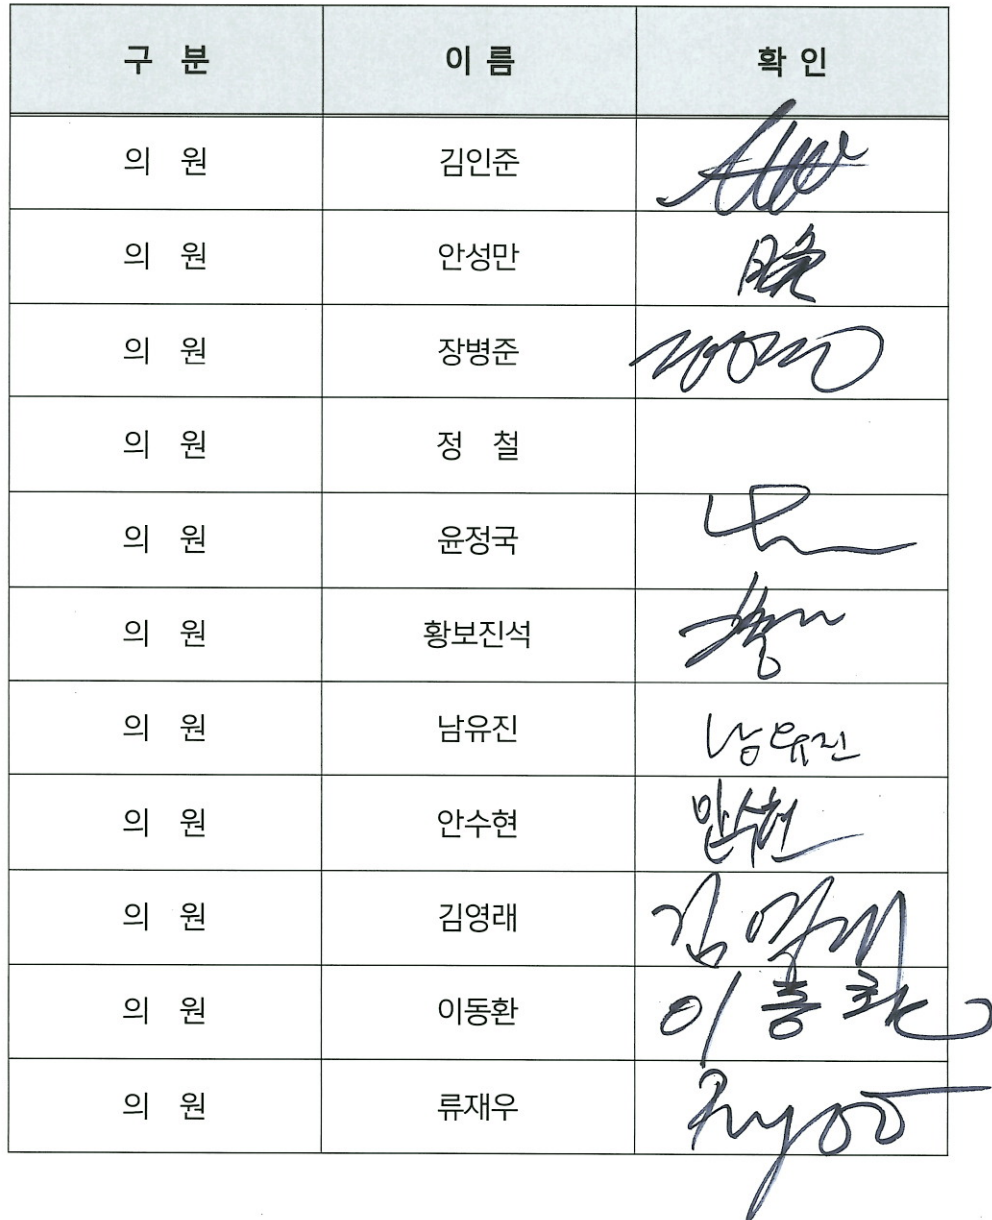 구 분 이 름 확 인
의 원 김인준
의 원 안성만
의 원 장병준
의 원 정 철
의 원 윤정국
의 원 황보진석
의 원 남유진 남유진
의 원 안수현 안수현
의 원 김영래 김영래
의 원 이동환 이동환
의 원 류재우 Ryoo